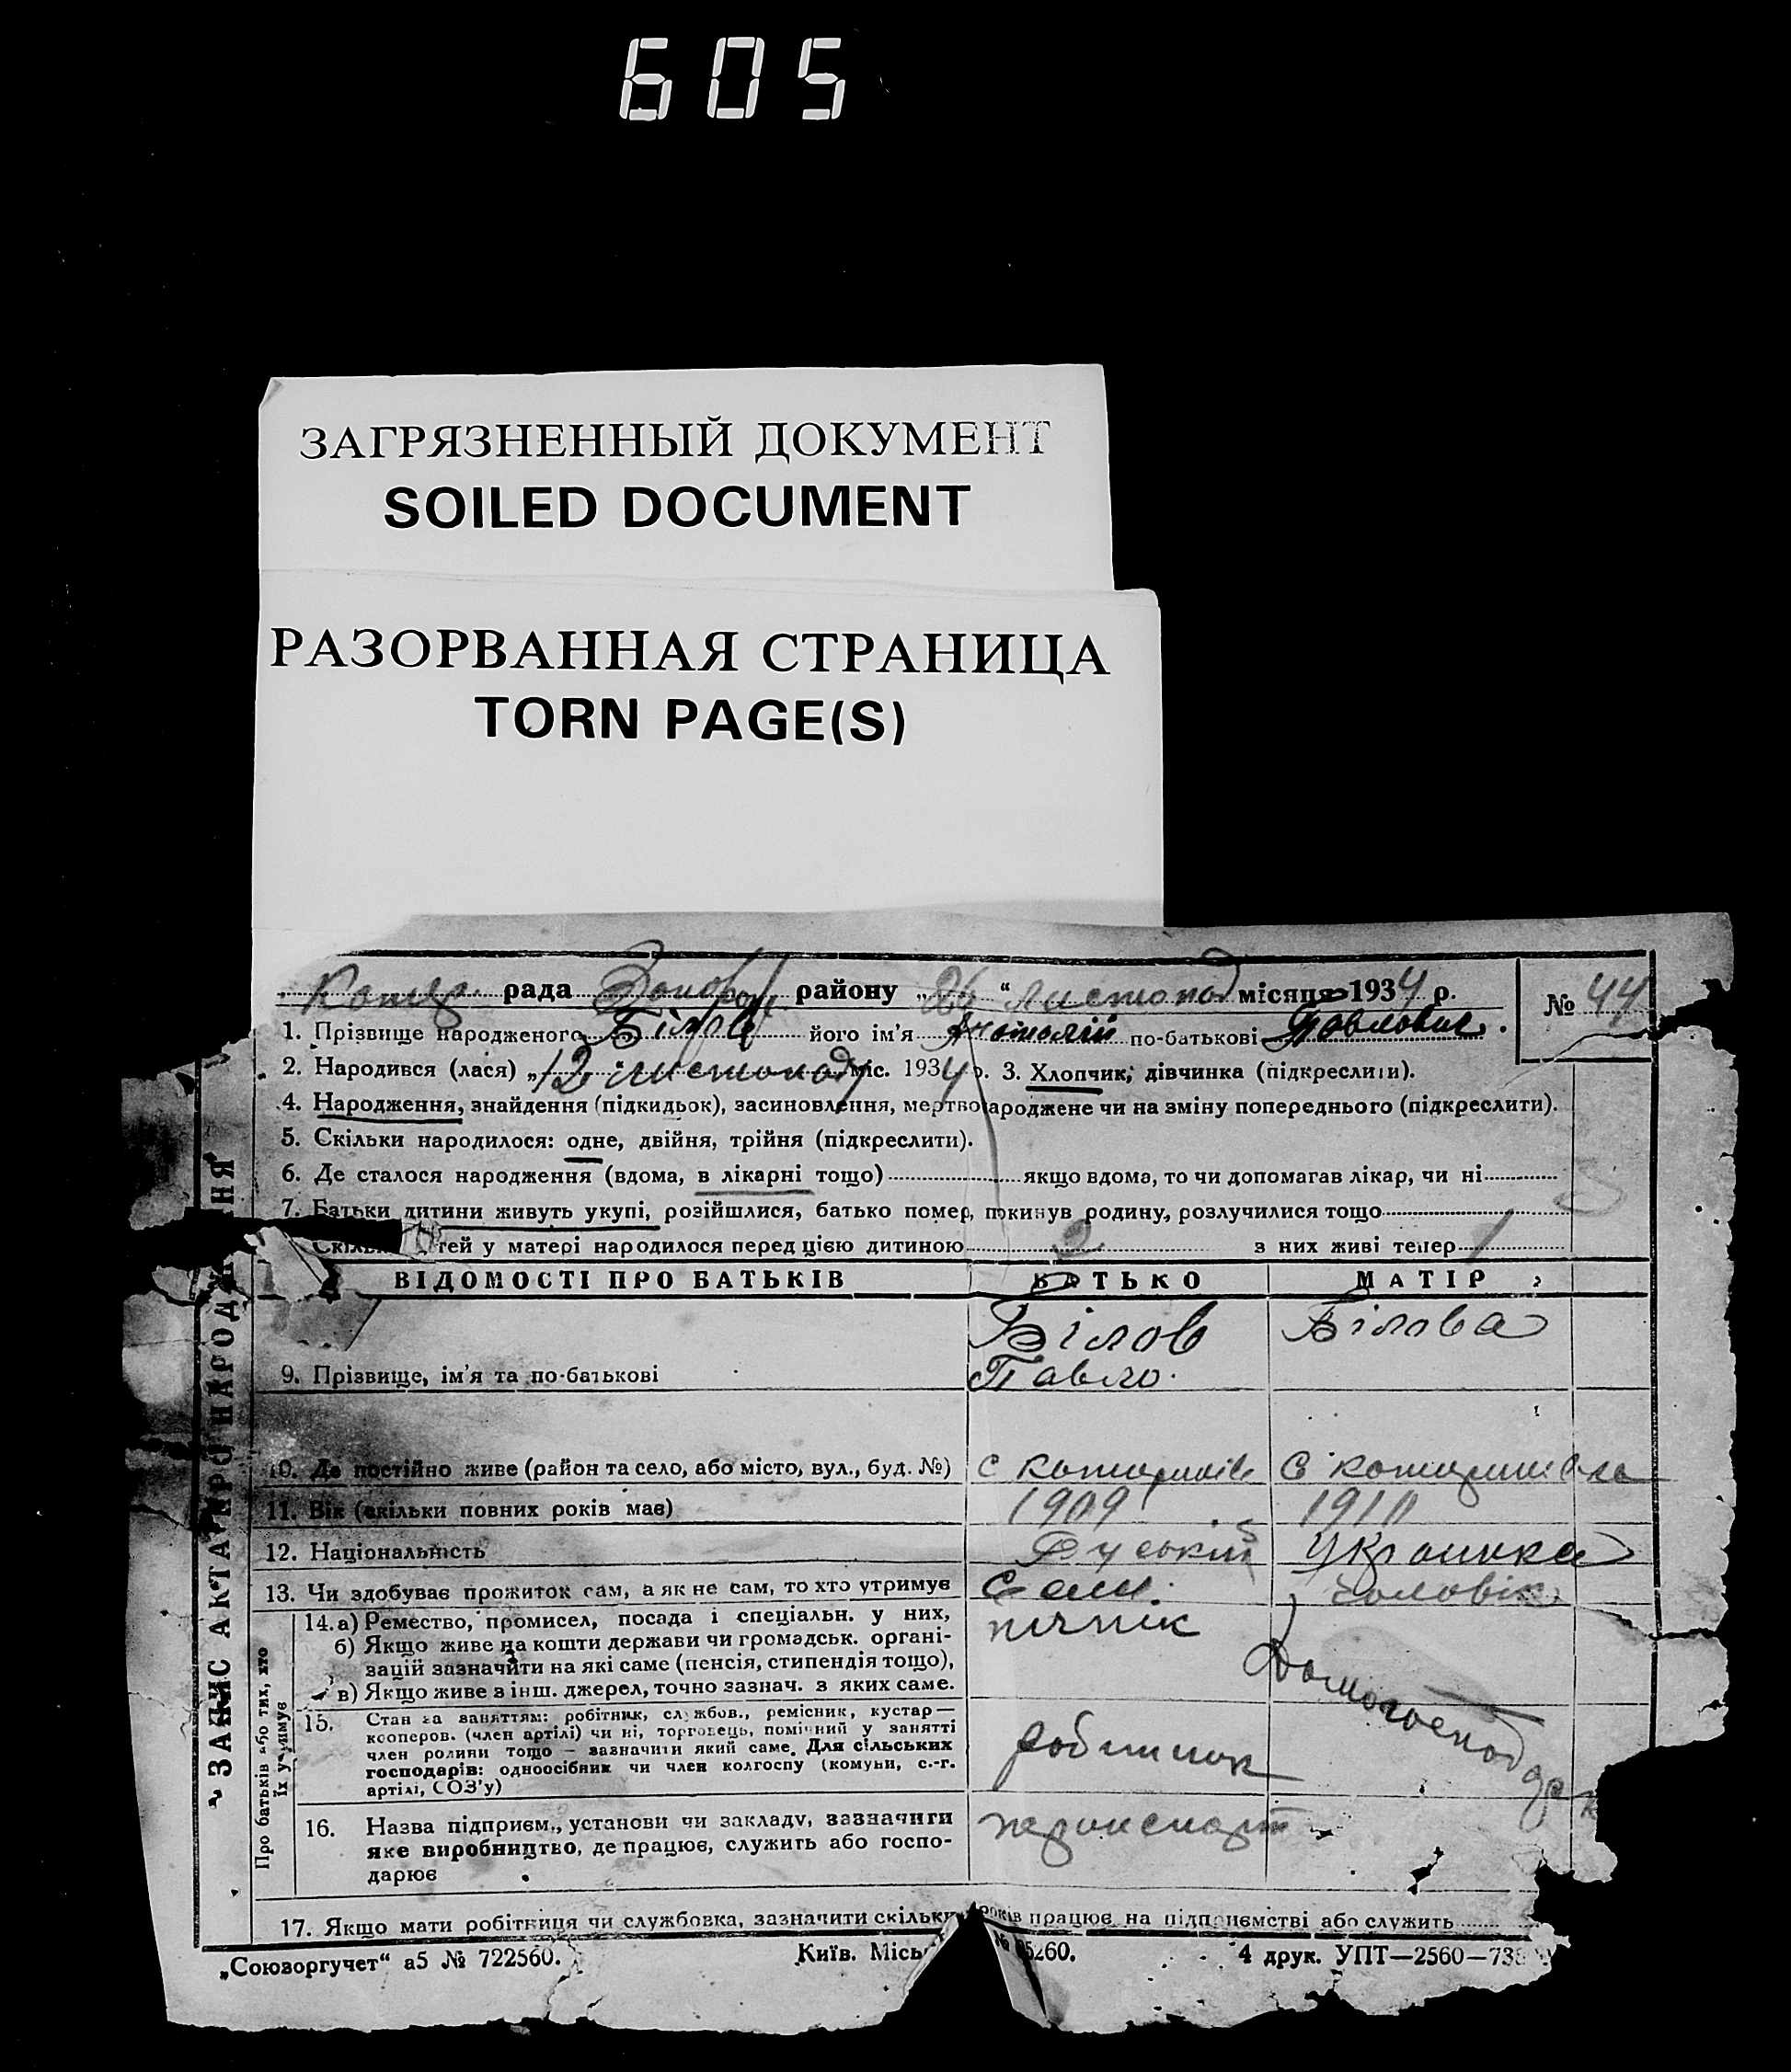 605
ЗАГРЯЗНЕННЫЙ ДОКУМЕНТ
SOILED DOCUMENT
РАЗОРВАННАЯ СТРАНИЦА
TORN PAGE(S)
рада району „26“ листопад місяця 1934 р. № 44
1. Прізвище народженого Білов його ім'я Анатолій по-батькові Павлович.
2. Народився (лася) „12 листопаду міс. 1934 р. 3. Хлопчик, дівчинка (підкреслити).
4. Народження, знайдення (підкидьок), засиновлення, мертвонароджене чи на зміну попереднього (підкреслити).
5. Скільки народилося: одне, двійня, трійня (підкреслити).
6. Де сталося народження (вдома, в лікарні тощо) якщо вдома, то чи допомагав лікар, чи ні
7. Батьки дитини живуть укупі, розійшлися, батько помер, покинув родину, розлучилися тощо
тей у матері народилося перед цією дитиною 2 з них живі тепер 1
ВІДОМОСТІ ПРО БАТЬКІВ БАТЬКО МАТІР
Білов Білова
9. Прізвище, ім'я та по-батькові Павло.
10. Де постійно живе (район та село, або місто, вул., буд. №) с с
11. Вік (скільки повних років має) 1909 1910
12. Національність Руський Українка
13. Чи здобуває прожиток сам, а як не сам, то хто утримує Сам. чоловік
14. а) Ремество, промисел, посада і спеціальн. у них, пічнік
б) Якщо живе на кошти держави чи громадськ. органі-
зацій зазначити на які саме (пенсія, стипендія тощо),
в) Якщо живе з інш. джерел, точно зазнач. з яких саме.
Домогосподарк
15. Стан за заняттям: робітник, службов., ремісник, кустар—
кооперов. (член артілі) чи ні, торговець, помічний у занятті
член родини тощо — зазначити який саме. Для сільських
господарів: одноосібник чи член колгоспу (комуни, с.-г.
артілі, СОЗ'у)
робитник
16. Назва підприєм., установи чи закладу, зазначити
яке виробництво, де працює, служить або госпо-
дарює
транспорт
17. Якщо мати робітниця чи службовка, зазначити скільки років працює на підприємстві або служить
„Союзоргучет“ а5 № 722560. Київ. Міськ № 5260. 4 друк. УПТ—2560—738
ЗАПИС АКТА ПРО НАРОДЖЕННЯ
Про батьків або тих, хто
їх утримує